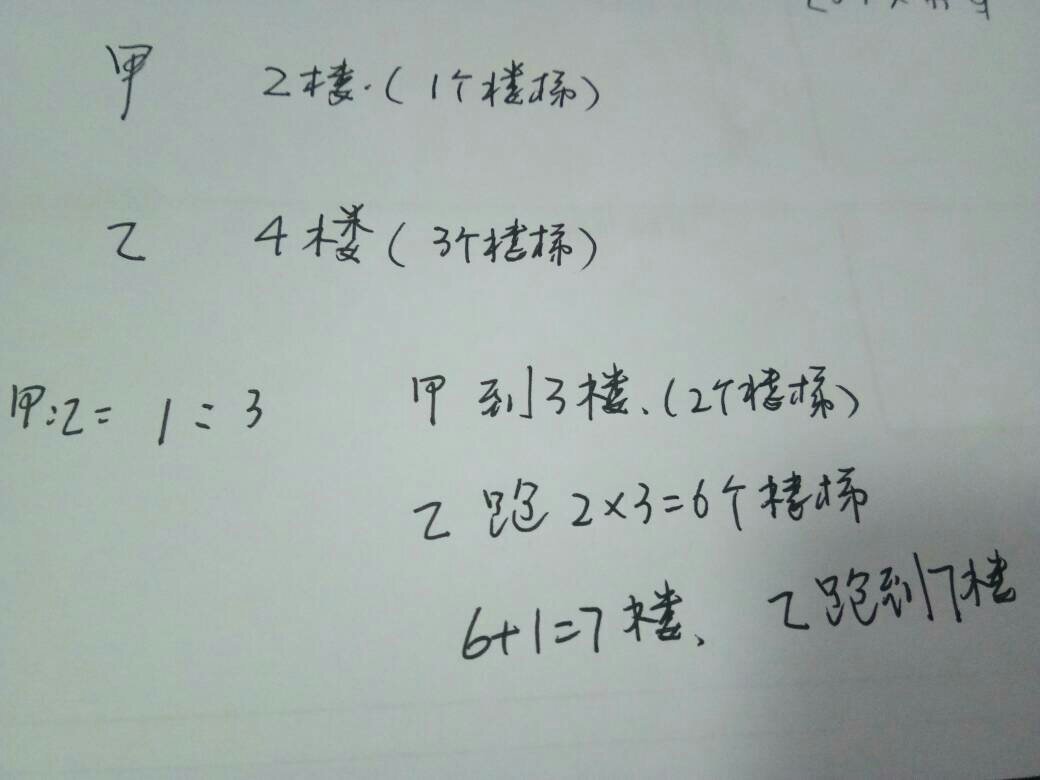 甲 2楼.(1个楼梯)
乙 4楼(3个楼梯)
甲:乙=1:3 甲到3楼、(2个楼梯)
乙跑2×3=6个楼梯
6+1=7楼、乙跑到7楼